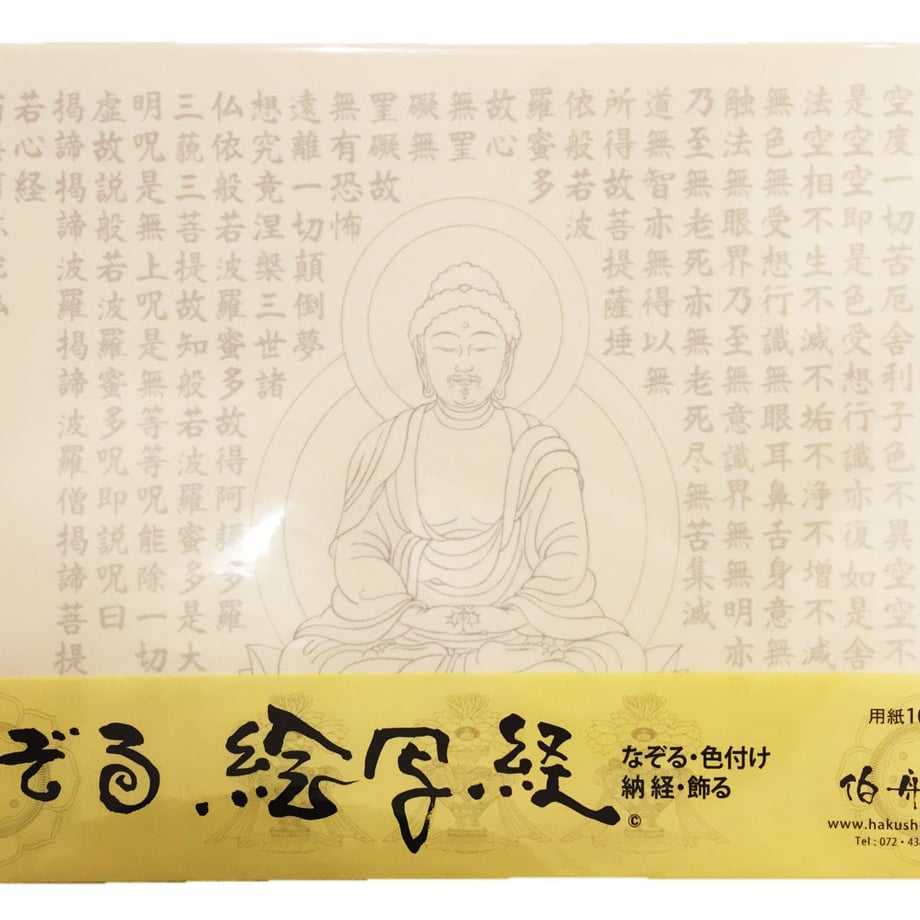 空度一切苦厄舎利子色不異空空不
是空空即是色受想行識亦復如是舎
法空相不生不滅不垢不浄不増不減
無色無受想行識無眼耳鼻舌身意無
触法無眼界乃至無意識界無無明亦
乃至無老死亦無老死尽無苦集滅
道無智亦無得以無
所得故菩提薩埵
依般若波
羅蜜多
故心
無罣
礙無
罣礙故
無有恐怖
遠離一切顛倒夢
想究竟涅槃三世諸
仏依般若波羅蜜多故得阿耨多羅
三藐三菩提故知般若波羅蜜多是大
明呪是無上呪是無等等呪能除一切
虚故説般若波羅蜜多呪即説呪曰
掲諦掲諦波羅掲諦波羅僧掲諦菩提
若心経
ぞる 絵写経
©
なぞる・色付け
納経・飾る
用紙10
伯舟
www.hakush
Tel : 072・43